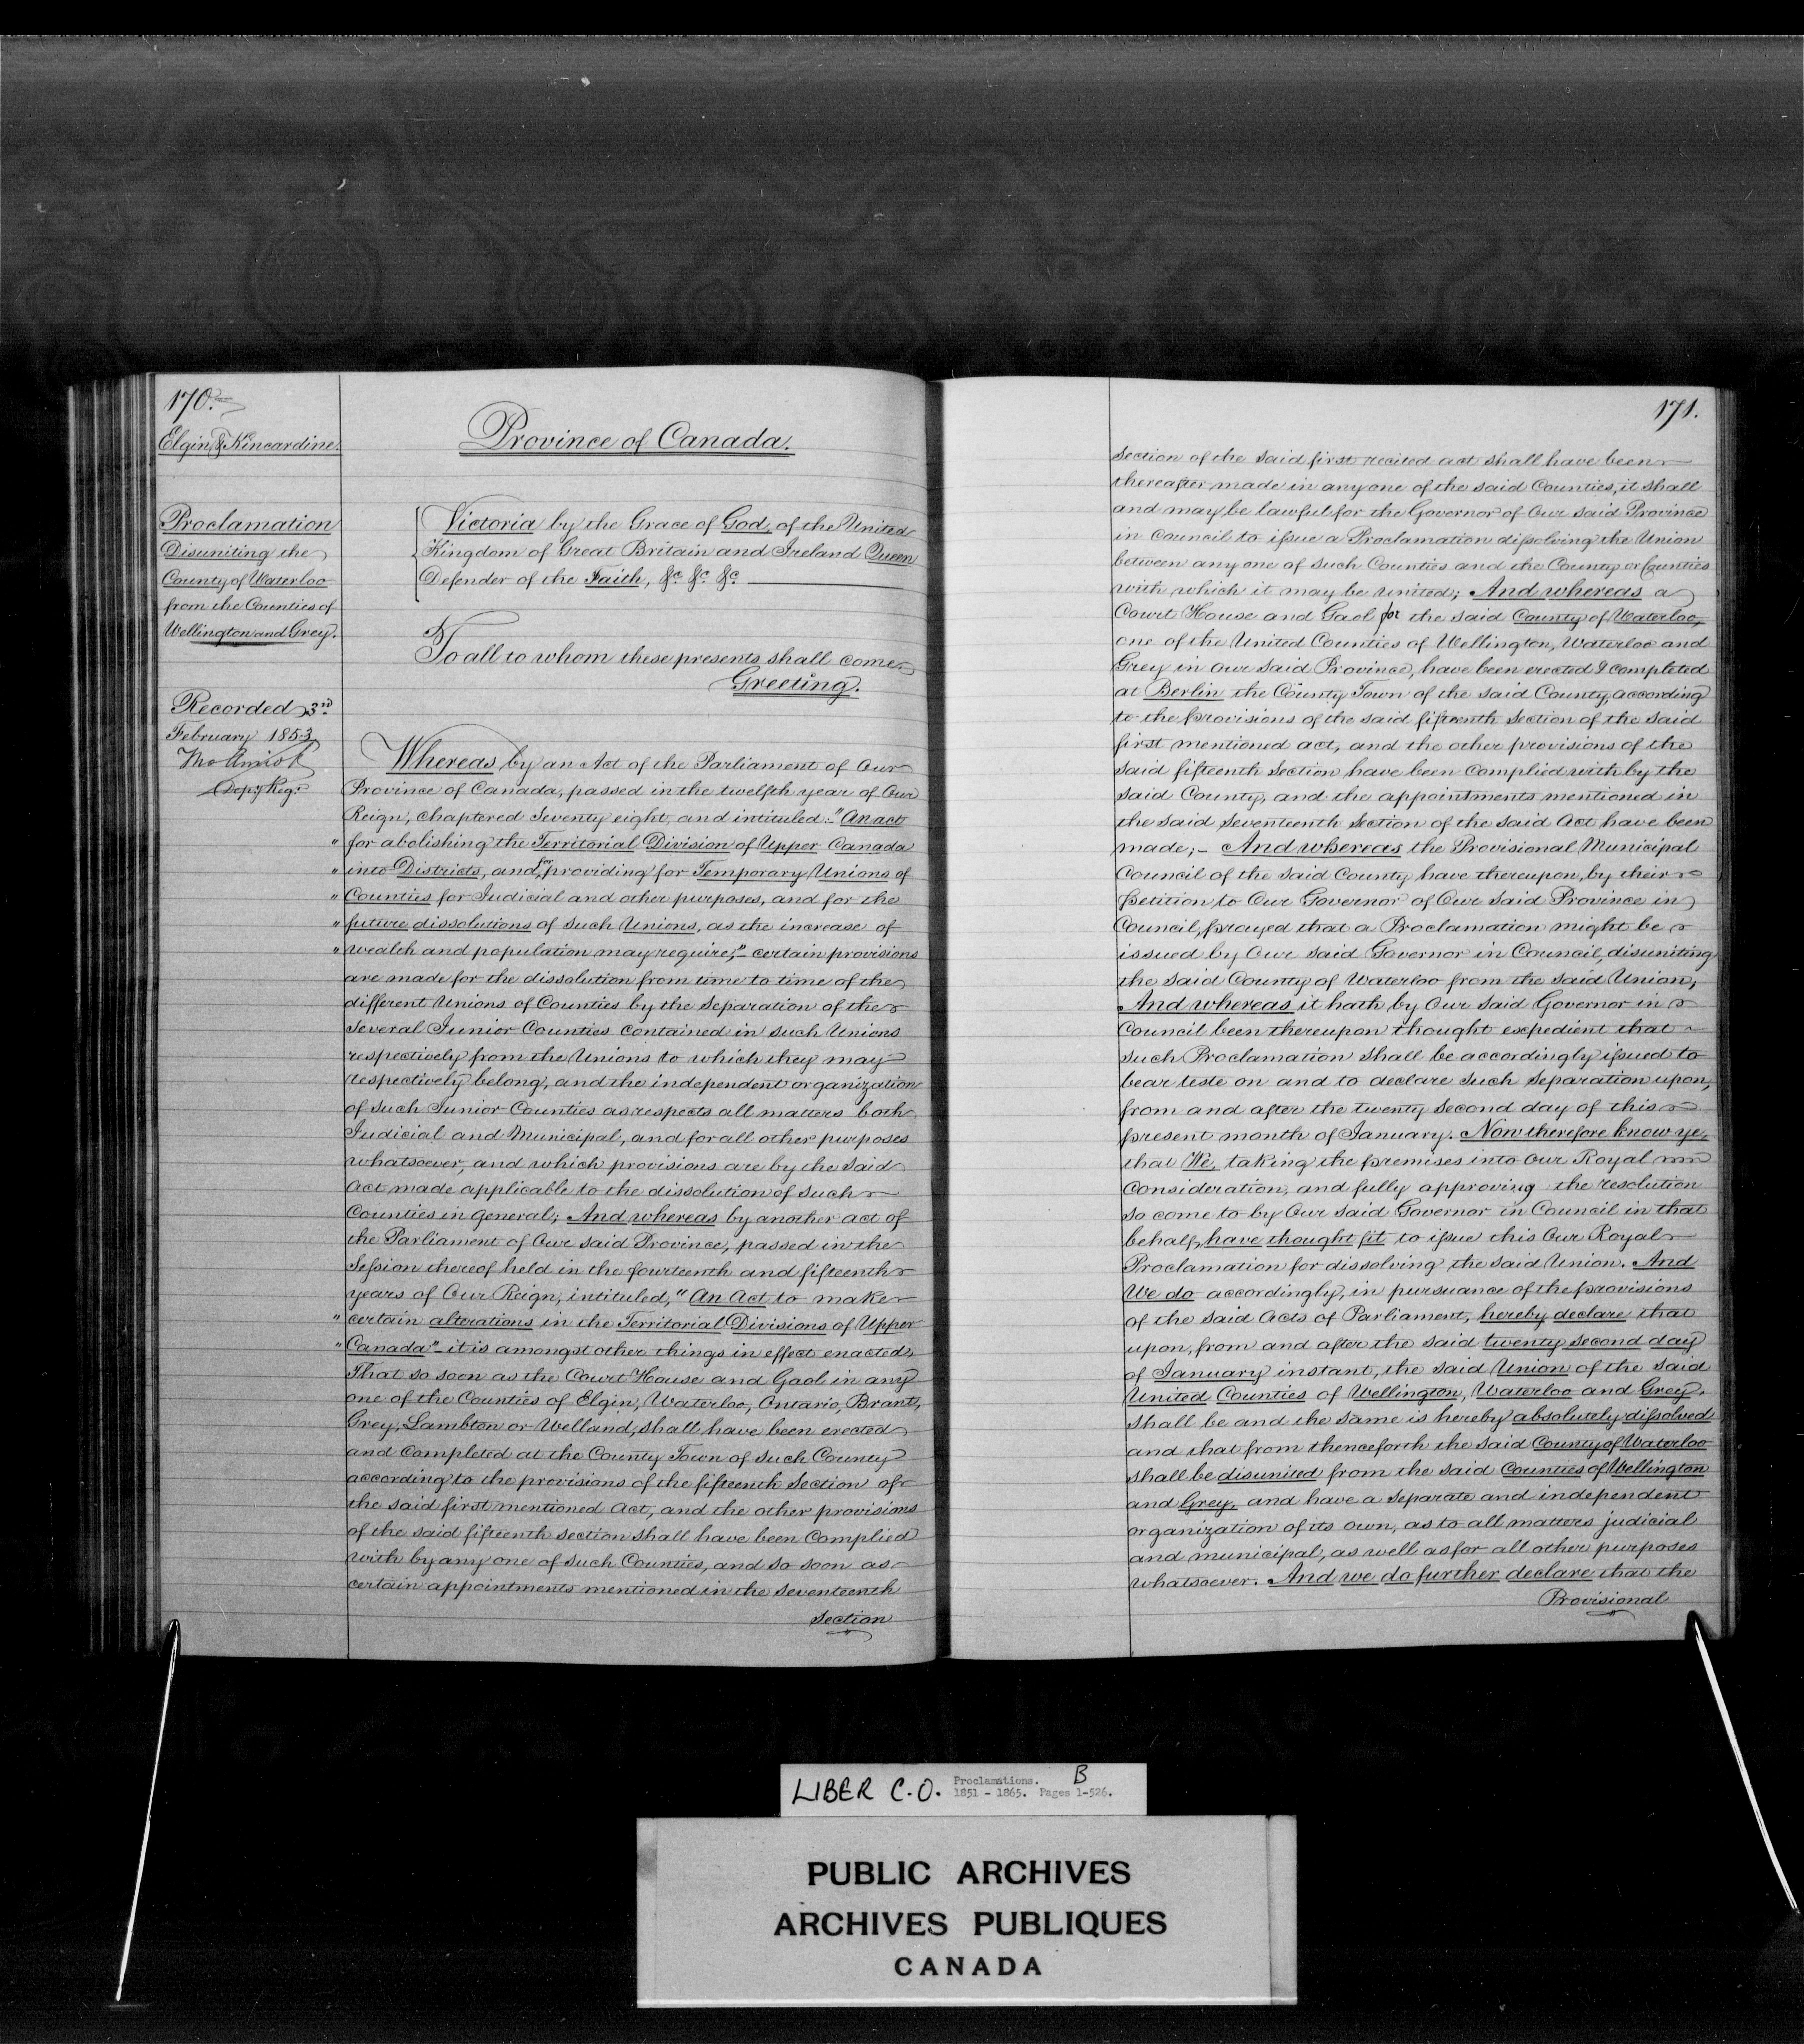 170.
Elgin & Kincardine.
Province of Canada.
Proclamation
Disuniting the
County of Waterloo
from the Counties of
Wellington and Grey.
Recorded 3rd
February 1853
Tho Amiot
Depy Reg:
Victoria by the Grace of God, of the United
Kingdom of Great Britain and Ireland Queen
Defender of the Faith, &c &c &c
To all to whom these presents shall come
Greeting.
Whereas by an Act of the Parliament of Our
Province of Canada, passed in the twelfth year of Our
Reign, chaptered Seventy eight, and intituled: "An act
" for abolishing the Territorial Division of Upper Canada
" into Districts, and for providing for Temporary Unions of
" Counties for Judicial and other purposes, and for the
" future dissolutions of such Unions, as the increase of
" wealth and population may require;"– certain provisions
are made for the dissolution from time to time of the
different Unions of Counties by the Separation of the
Several Junior Counties contained in such Unions
respectively from the Unions to which they may
respectively belong, and the independent organization
of such Junior Counties as respects all matters both
Judicial and Municipal, and for all other purposes
whatsoever, and which provisions are by the said
Act made applicable to the dissolution of such
Counties in general; And whereas by another act of
the Parliament of Our said Province, passed in the
Session thereof held in the fourteenth and fifteenth
years of Our Reign, intituled, "An Act to make
" certain alterations in the Territorial Divisions of Upper
" Canada"– it is amongst other things in effect enacted,
That so soon as the Court House and Gaol in any
one of the Counties of Elgin, Waterloo, Ontario, Brant,
Grey, Lambton or Welland, shall have been erected
and completed at the County Town of such County
according to the provisions of the fifteenth Section of
the said first mentioned Act, and the other provisions
of the said fifteenth section shall have been Complied
with by any one of such Counties, and so soon as
certain appointments mentioned in the Seventeenth
Section
171.
Section of the said first recited act shall have been
thereafter made in any one of the said Counties, it shall
and may be lawful for the Governor of Our said Province
in Council to issue a Proclamation dissolving the Union
between any one of such Counties and the County or Counties
with which it may be united; And whereas a
Court House and Gaol for the said County of Waterloo,
one of the United Counties of Wellington, Waterloo and
Grey in our said Province, have been erected & completed
at Berlin the County Town of the said County, according
to the provisions of the said fifteenth Section of the said
first mentioned act, and the other provisions of the
said fifteenth Section have been complied with by the
said County, and the appointments mentioned in
the said Seventeenth Section of the said Act have been
made;– And whereas the Provisional Municipal
Council of the said County have thereupon, by their
petition to Our Governor of Our said Province in
Council, prayed that a Proclamation might be
issued by Our said Governor in Council, disuniting
the said County of Waterloo from the said Union,
And whereas it hath by Our said Governor in
Council been thereupon thought expedient that
such Proclamation shall be accordingly issued to
bear teste on and to declare such Separation upon,
from and after the twenty second day of this
present month of January. Now therefore know ye,
that We, taking the premises into Our Royal
Consideration, and fully approving the resolution
so come to by Our said Governor in Council in that
behalf, have thought fit to issue this Our Royal
Proclamation for dissolving the said Union. And
We do accordingly, in pursuance of the provisions
of the said Acts of Parliament, hereby declare that
upon, from and after the said twenty second day
of January instant, the said Union of the said
United Counties of Wellington, Waterloo and Grey,
shall be and the same is hereby absolutely dissolved
and that from thenceforth the said County of Waterloo
shall be disunited from the said Counties of Wellington
and Grey, and have a separate and independent
organization of its own, as to all matters judicial
and municipal, as well as for all other purposes
whatsoever. And we do further declare that the
Provisional
LIBER C.O. Proclamations. B
1851 - 1865. Pages 1-526.
PUBLIC ARCHIVES
ARCHIVES PUBLIQUES
CANADA